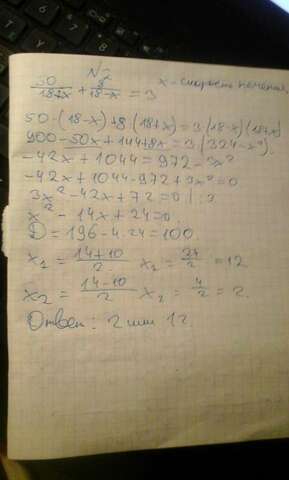 N2
50/(18+x) + 8/(18-x) = 3 x - скорость
50·(18-x)+8(18+x)=3(18-x)(18+x)
900-50x+144+8x=3(324-x²)
-42x+1044=972-3x²
-42x+1044-972+3x²=0
3x²-42x+72=0 | :3
x²-14x+24=0
D=196-4·24=100
x₁ = (14+10)/2 x₁ = 24/2 = 12
x₂ = (14-10)/2 x₂ = 4/2 = 2.
Ответ: 2 или 12.